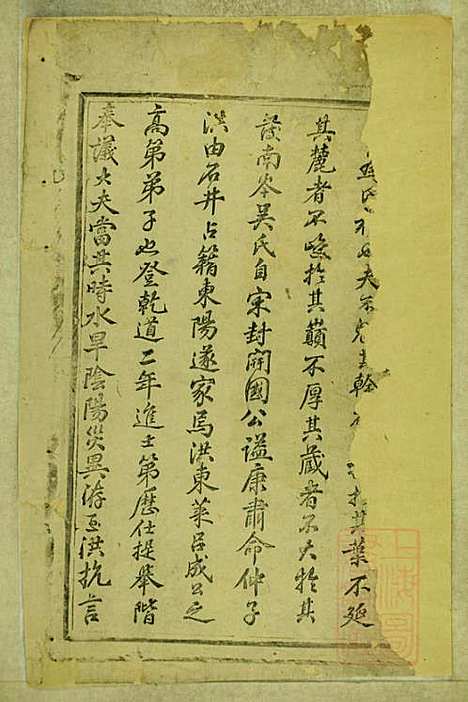 不必夫不先其幹 其葉不延
其麓者不峻於其巔不厚其藏者不大於其
發南岑吳氏自宋封開國公謚康肅命仲子
洪由石井占籍東陽遂家焉洪東萊呂成公之
高第弟子也登乾道二年進士第歷仕提舉階
奉議大夫當其時水旱陰陽災異洊至洪抗言